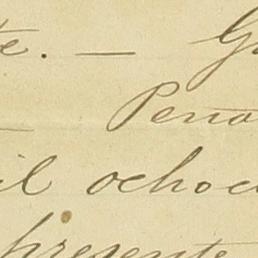 te. — G
Peno
il ochoc
presente